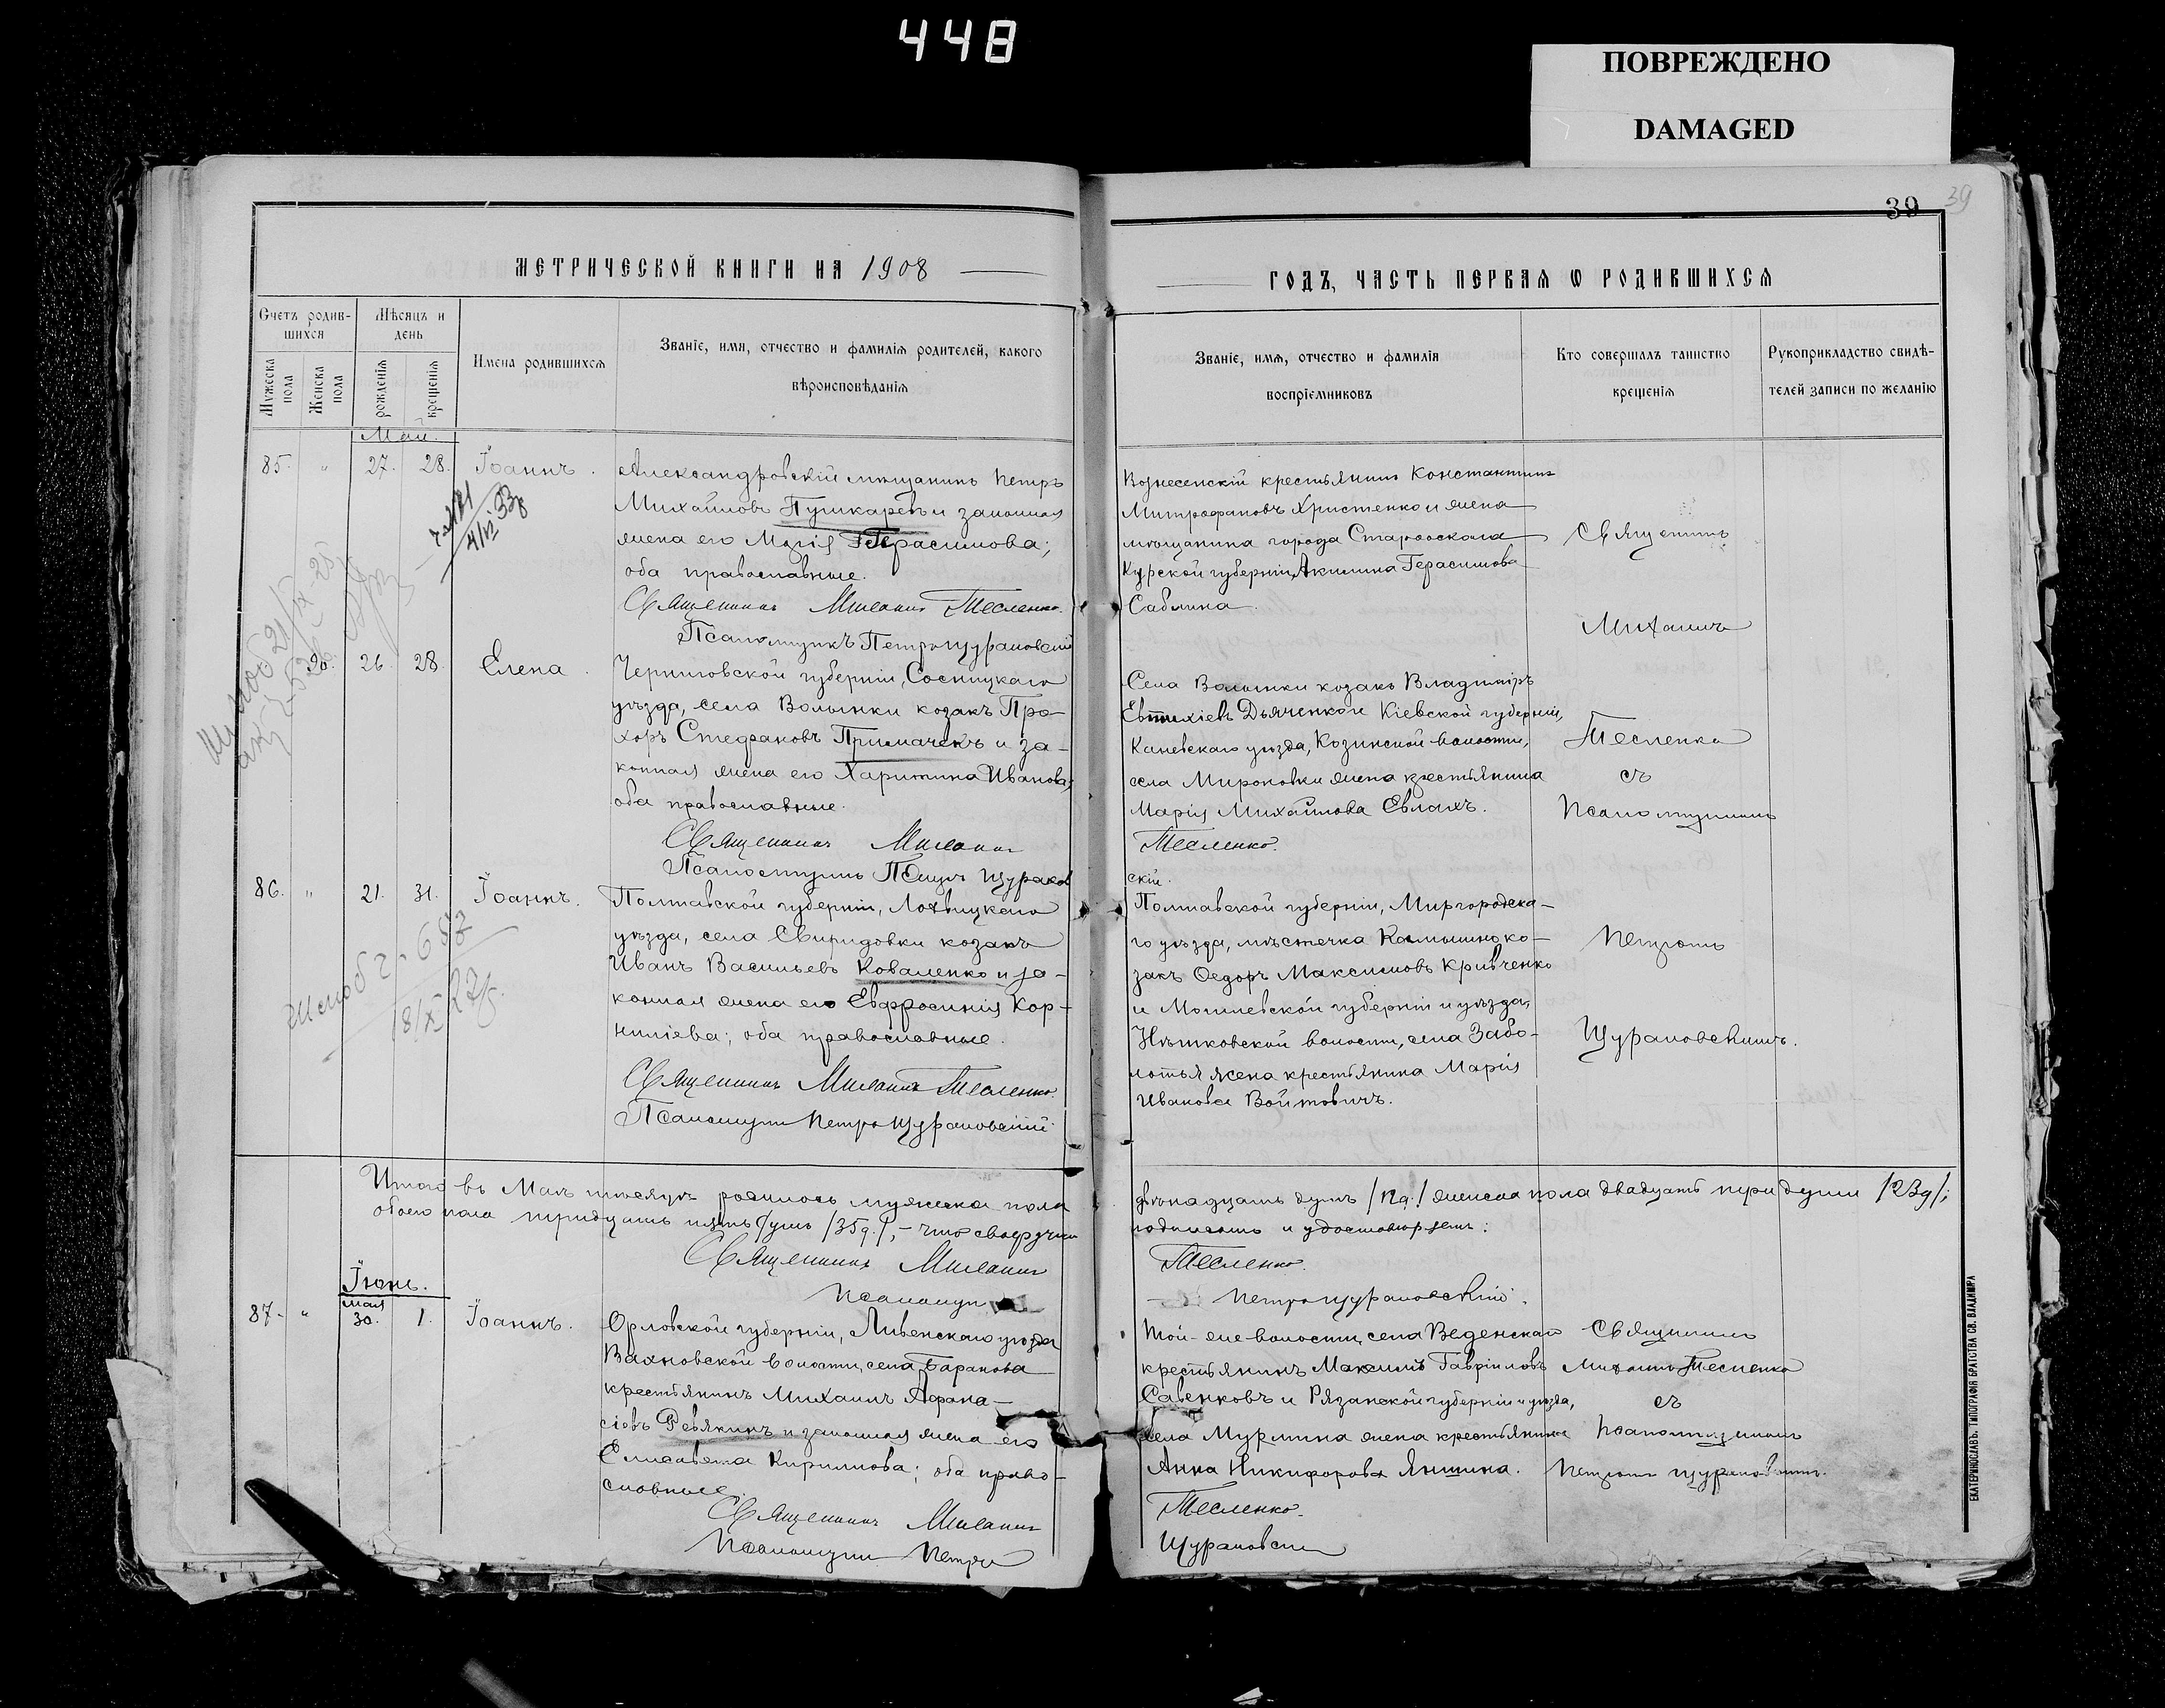 448
ПОВРЕЖДЕНО
DAMAGED
39
39
МЕТРИЧЕСКОЙ КНИГИ НА 1908
Счетъ родив-
шихся
Мѣсяцъ и
день
Мужеска
пола
Женска
пола
рожденія
крещенія
Имена родившихся
Званіе, имя, отчество и фамилія родителей, какого
вѣроисповѣданія
Май.
85. " 27. 28. Іоаннъ.
Александровскій мѣщанинъ Петръ
Михайловъ Пушкаревъ и законная
жена его Марія Герасимова;
оба православные.
Священникъ Михаилъ Тесленко.
Псаломщикъ Петръ Щурановскій
20. 26. 28. Елена.
Черниговской губерніи, Сосницкаго
уѣзда, села Волынки козакъ Про-
хоръ Стефановъ Примаченъ и за-
конная жена его Харитина Иванова;
оба православные.
Священникъ Михаилъ
Псаломщикъ Петръ Щуранов
86. " 21. 31. Іоаннъ.
Полтавской губерніи, Лохвицкаго
уѣзда, села Свиридовки козакъ
Иванъ Васильевъ Коваленко и за-
конная жена его Евфросинія Кор-
ниліева; оба православные.
Священникъ Михаилъ Тесленко.
Псаломщикъ Петръ Щурановскій
Итого въ Маѣ мѣсяцѣ родилось мужеска пола
обоего пола тридцать пять душъ /35д./, - что своеручнымъ
Священникъ Михаилъ
Псаломщ
Іюнь.
мая
87. " 30. 1. Іоаннъ.
Орловской губерніи, Ливенскаго уѣзда
Вахновской волости, села Баранова
крестьянинъ Михаилъ Афана-
сіевъ Ревякинъ и законная жена его
Елисавета Кириллова; оба право-
славные.
Священникъ Михаилъ
Псаломщикъ Петръ
ГОДЪ, ЧАСТЬ ПЕРВАЯ Ѡ РОДИВШИХСЯ
Званіе, имя, отчество и фамилія
воспріемниковъ
Кто совершалъ таинство
крещенія
Рукоприкладство свидѣ-
телей записи по желанію
Вознесенскій крестьянинъ Константинъ
Митрофановъ Христенко и жена
мѣщанина города Староοскола
Курской губерніи, Акилина Герасимова
Саблина.
Села Волынки козакъ Владиміръ
Евтихіевъ Дьяченко и Кіевской губерніи,
Каневскаго уѣзда, Козинской волости,
села Мироновки жена крестьянина
Марія Михайлова Евлахъ.
Тесленко.
скій.
Полтавской губерніи, Миргородска-
го уѣзда, мѣстечка Комышно ко-
закъ Ѳедоръ Максимовъ Кривченко
и Могилевской губерніи и уѣзда,
волости, села Забо-
лотья жена крестьянина Марія
Иванова Войтовичъ.
Священникъ
Михаилъ
Тесленко
съ
Псаломщикомъ
Петромъ
Щурановскимъ.
двѣнадцать душъ /12д./ женска пола двадцать три души /23д/;
подписомъ и удостовѣряемъ:
Тесленко.
Петръ Щурановскій.
Той-же волости, села Веденскаго
крестьянинъ Максимъ Гавріиловъ
Савенковъ и Рязанской губерніи и уѣзда,
села Мурмина жена крестьянина
Анна Никифорова Яншина.
Тесленко.
Щурановскій
Священникъ
Михаилъ Тесленко
съ
псаломщикомъ
Петромъ Щурановскимъ.
ЕКАТЕРИНОСЛАВЪ. ТИПОГРАФІЯ БРАТСТВА СВ. ВЛАДИМІРА